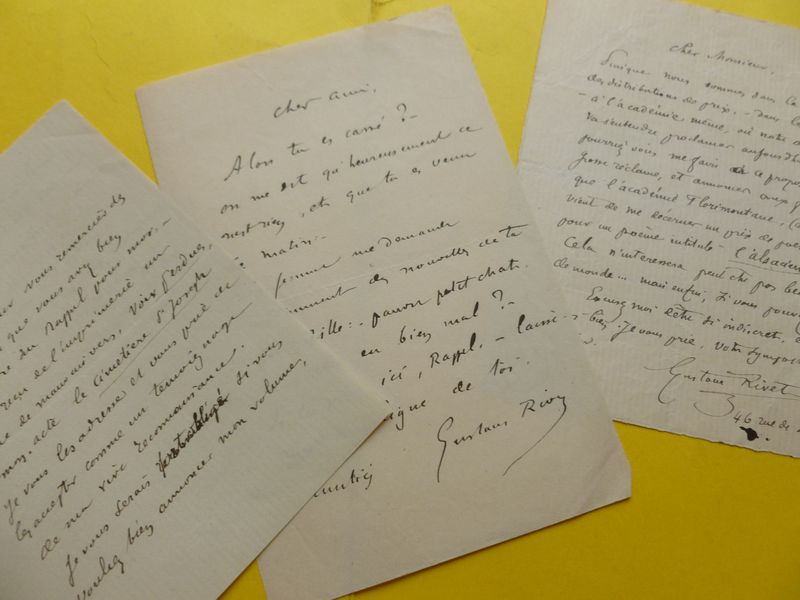 vous remercier de
que vous avez bien
du Rappel pour moi. -
de l'imprimerie un
de mauvais vers, Voix Perdues,
mon acte le Cimetière St Joseph
Je vous les adresse et vous prie de
les accepter comme un témoignage
de ma vive reconnaissance.
Je vous serais très obligé si vous
vouliez bien annoncer mon volume,
Cher ami,
Alors tu es cassé ? -
on me dit qu'heureusement ce
n'est rien, et que tu es venu
matin. -
femme me demande
des nouvelles de ta
fille. - pauvre petit chat.
bien mal ? -
ici, Rappel. - laisse-s
de toi.
Gustave Rivet
Cher Monsieur,
Puisque nous sommes dans la
des distributions de prix, - dans la
- à l'académie même, où notre
va s'entendre proclamer aujourd'h
pourriez vous me faire à ce propos
grosse réclame, et annoncer aux
que l'académie Florimontane,
vient de me décerner un prix de poé
pour un poème intitulé - l'alsacien
Cela n'intéressera peut être pas be
de monde... mais enfin, si vous pouv
Excusez moi d'être si indiscret,
je vous prie, votre sympa
Gustave Rivet
46 rue de